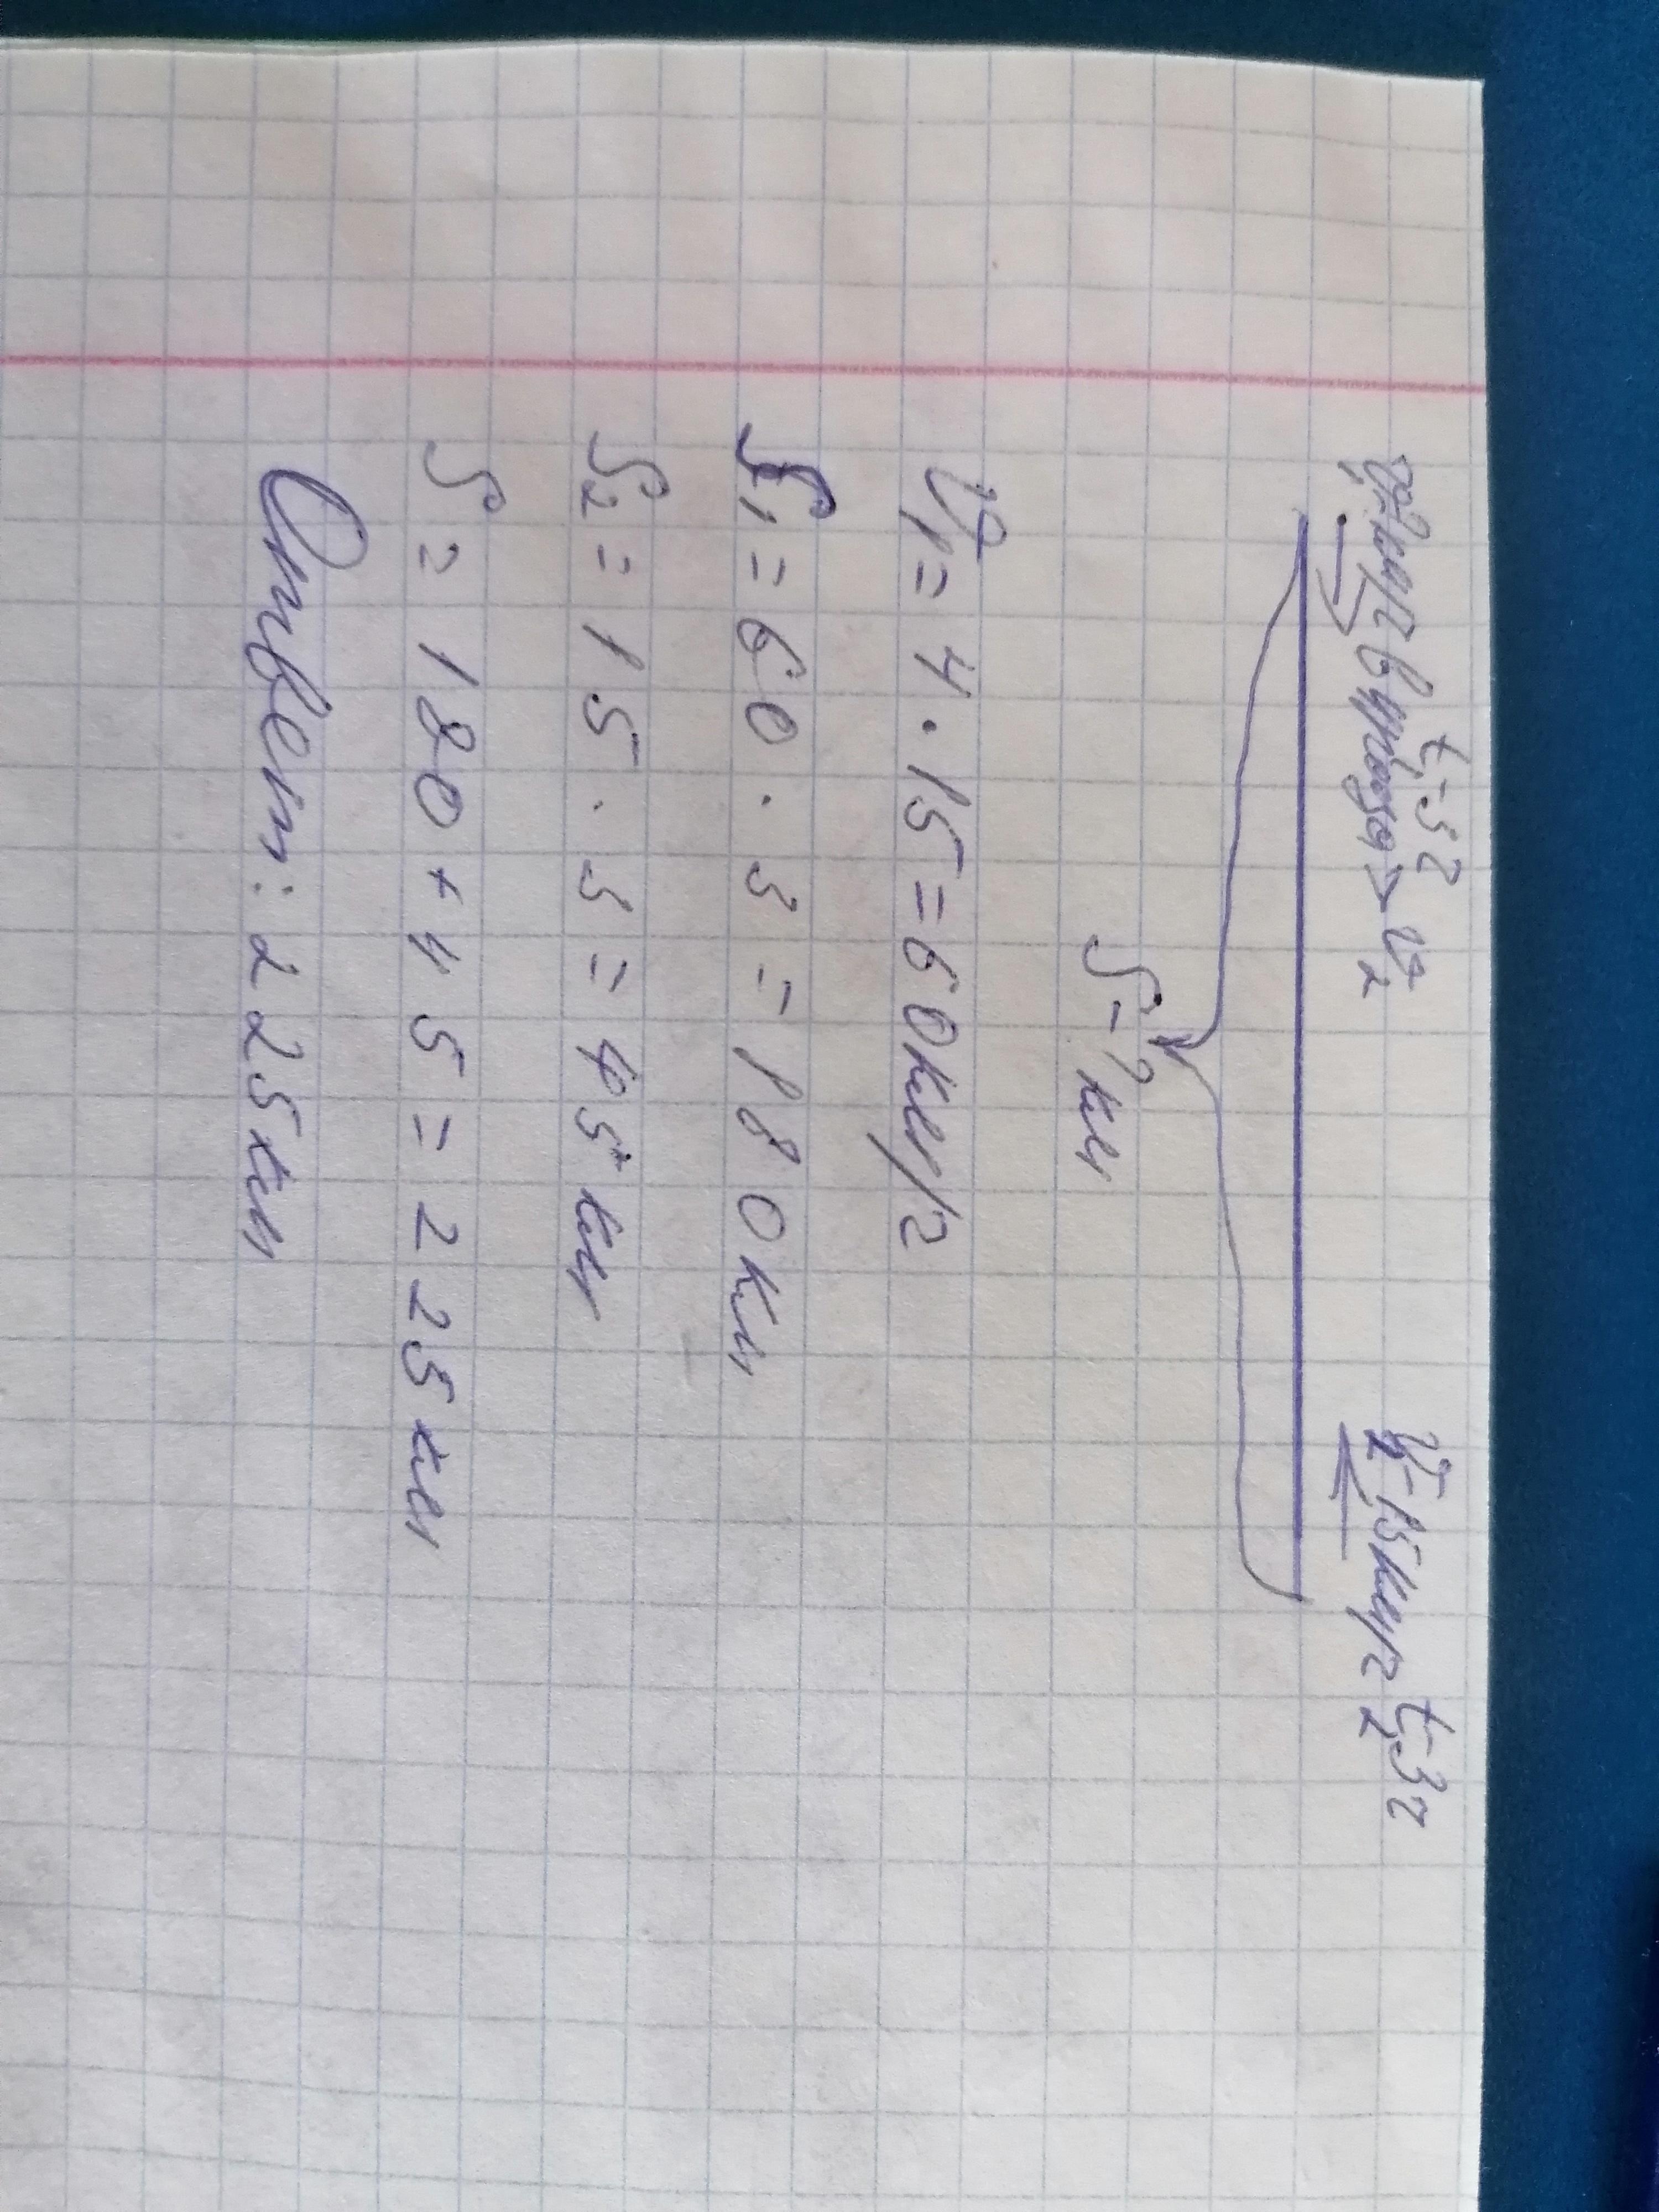 t₁-3г
V₁-?км/г в 4 раза > V₂
V₂-15км/г t₂-3г
S-? км
V₁=4·15=60км/г
S₁=60·3=180км
S₂=15·3=45км
S=180+45=225км
Ответ: 225км